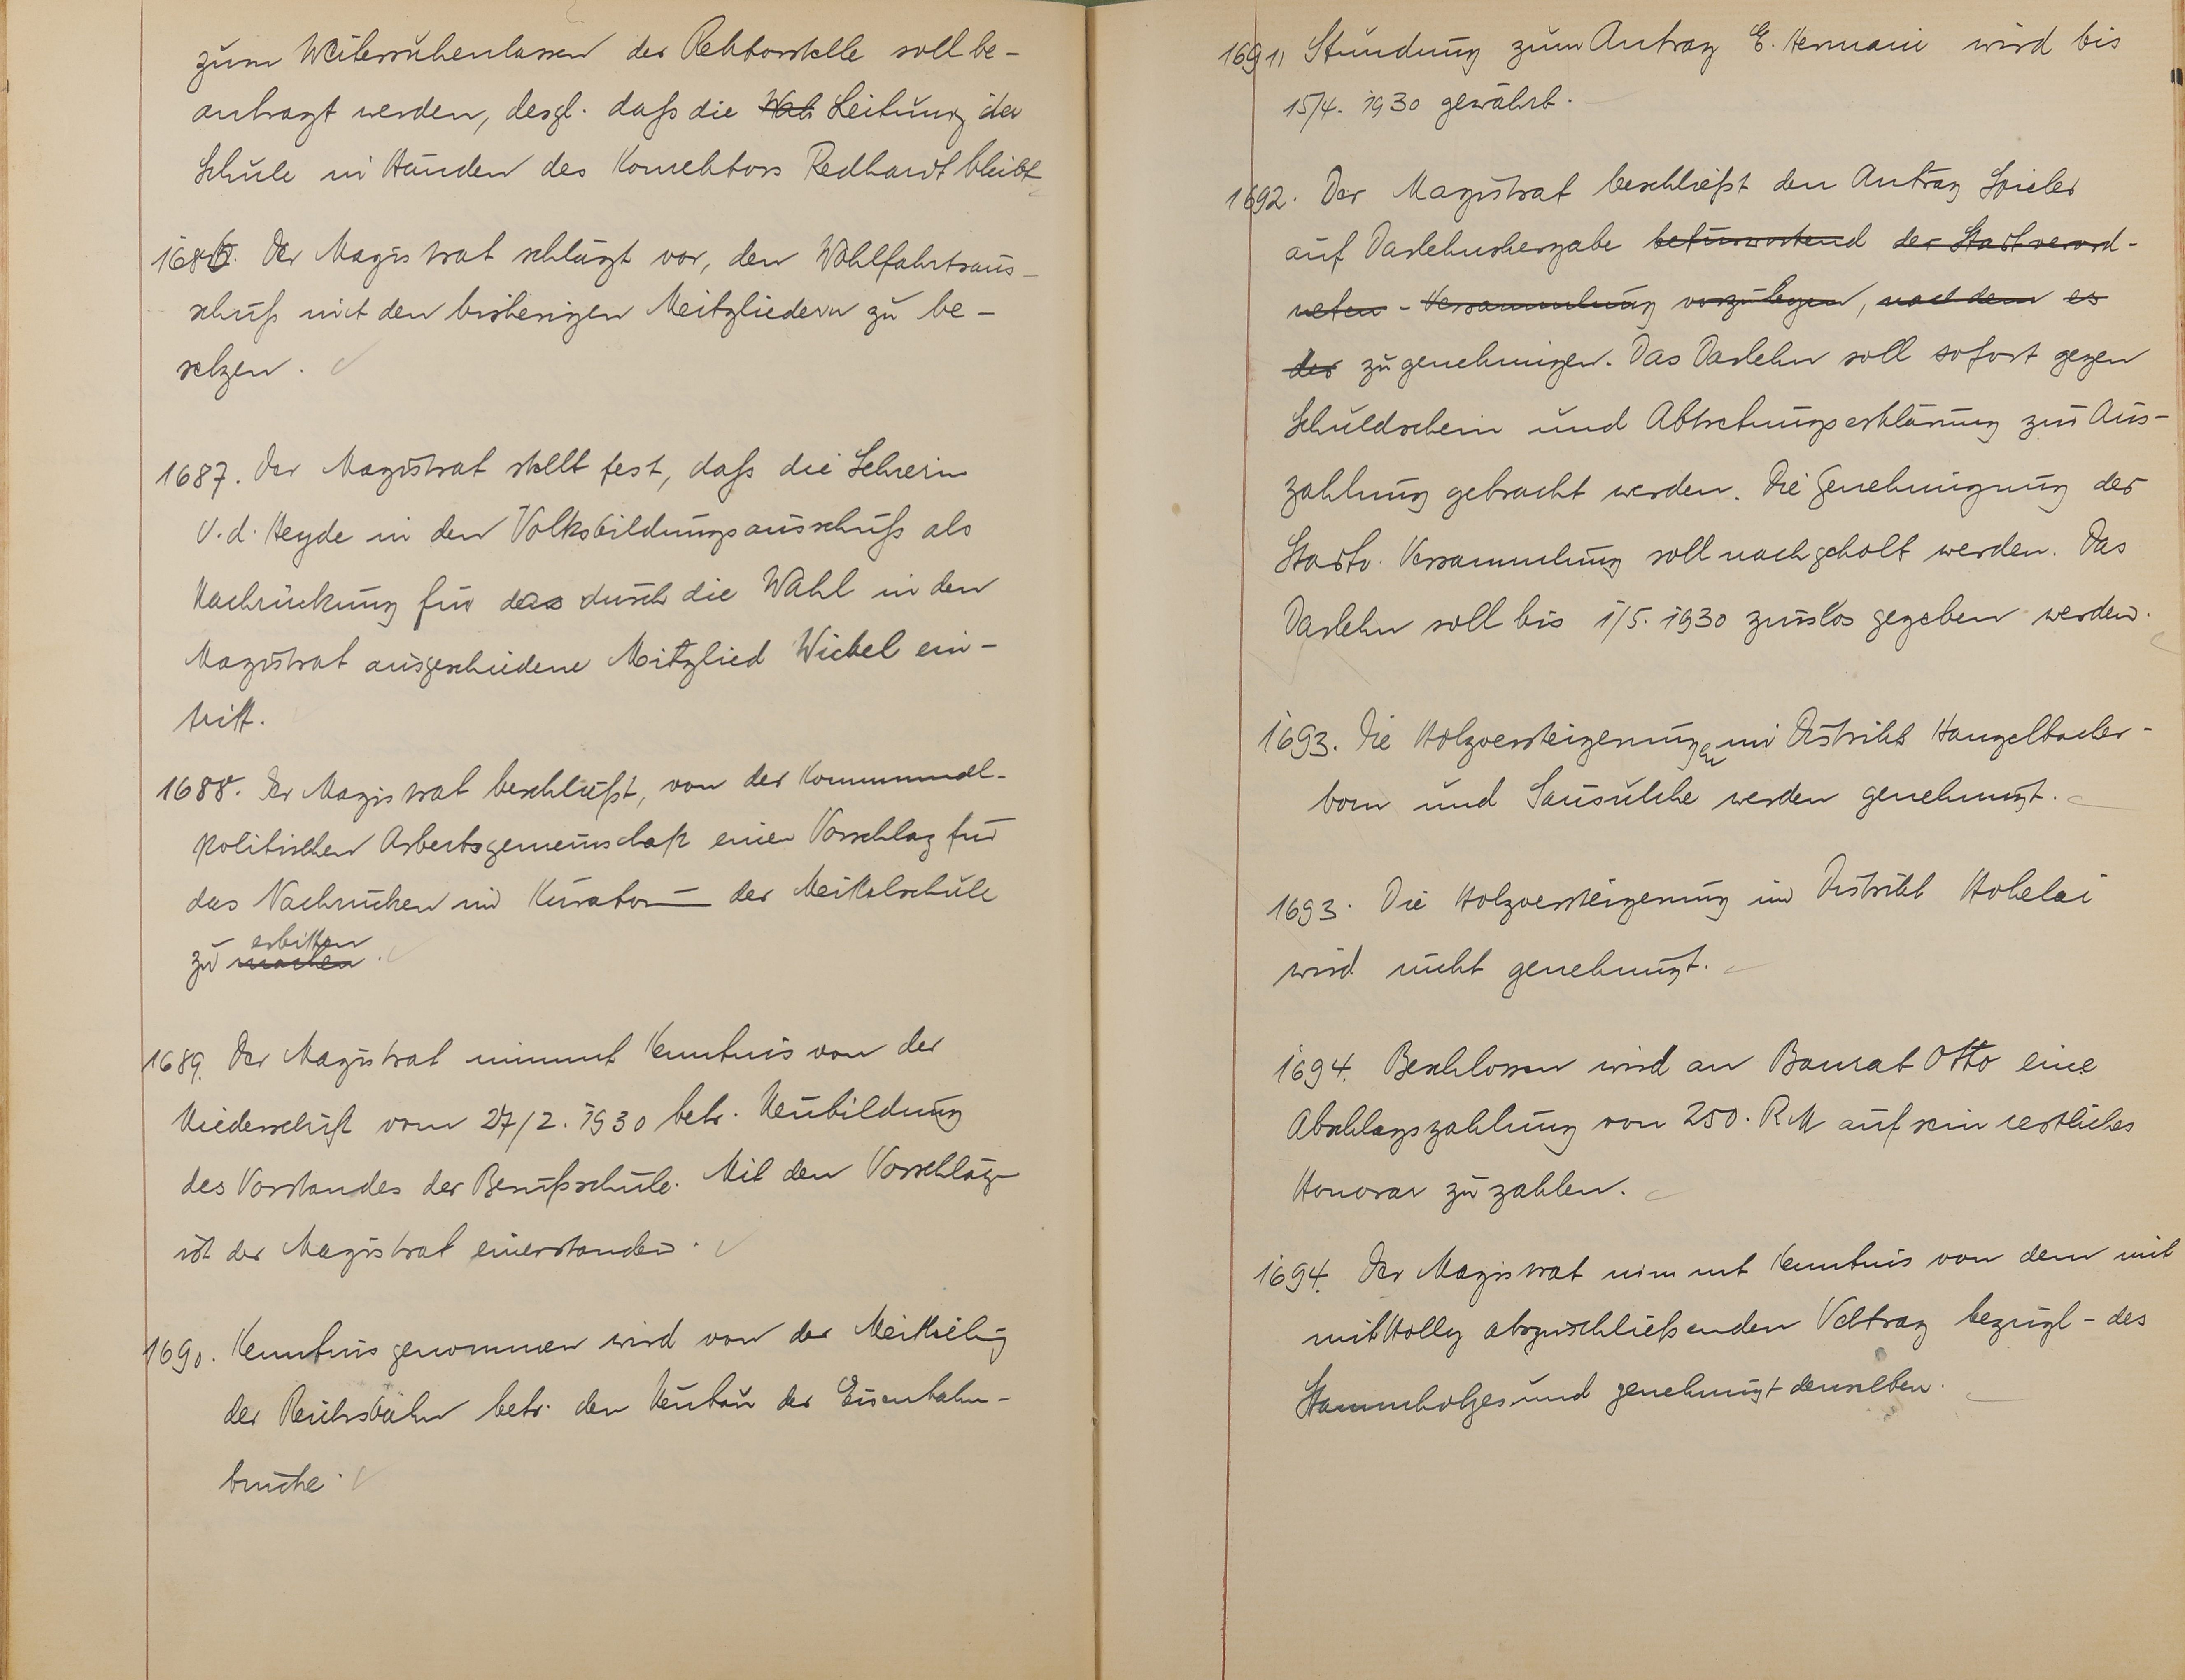 zum Weiterruhenlassen der Rektorstelle soll be-
antragt werden, desgl. daß die Wah Leitung der
Schule in Händen des Konrektors Redhardt bleibt
1686. Der Magistrat schlägt vor, den Wohlfahrtsaus-
schuß mit den bisherigen Mitgliedern zu be-
setzen.
1687. Der Magistrat stellt fest, daß die Lehrerin
v. d. Heyde in den Volksbildungsausschuß als
Nachrückung für das durch die Wahl in den
Magistrat ausgeschiedene Mitglied Wickel ein-
tritt.
1688. Der Magistrat beschließt, von der Kommunal-
politischen Arbeitsgemeinschaft einen Vorschlag für
das Nachrücken im Kuratorium der Mittelschule
erbitten
zu machen.
1689. Der Magistrat nimmt Kenntnis von der
Niederschrift vom 27/2. 1930 betr. Neubildung
des Vorstandes der Berufsschule. Mit den Vorschläg
ist der Magistrat einverstanden.
1690. Kenntnis genommen wird von der Mitteilung
der Reichsbahn betr. den Neubau der Eisenbahn-
brücke.
1691, Stundung zum Antrag E. Hermani wird bis
15/4. 1930 gewährt.
1692. Der Magistrat beschließt den Antrag Spieler
auf Darlehnshergabe befürwortend der Stadtverord-
neten-Versammlung vorzulegen, nachdem es
der zu genehmigen. Das Darlehn soll sofort gegen
Schuldschein und Abtretungserklärung zur Aus-
zahlung gebracht werden. Die Genehmigung der
Stadtv. Versammlung soll nachgeholt werden. Das
Darlehn soll bis 1/5. 1930 zinslos gegeben werden.
1693. Die Holzversteigerungen im Distrikt Hangelbacher-
born und werden genehmigt.
1693. Die Holzversteigerung im Distrikt Hohelai
wird nicht genehmigt.
1694. Beschlossen wird an Baurat Otto eine
Abschlagszahlung von 250. RM auf sein restliches
Honorar zu zahlen.
1694. Der Magistrat nimmt Kenntnis von dem mit
mit Holly abzuschließenden Vertrag bezügl- des
Stammholzes und genehmigt denselben.